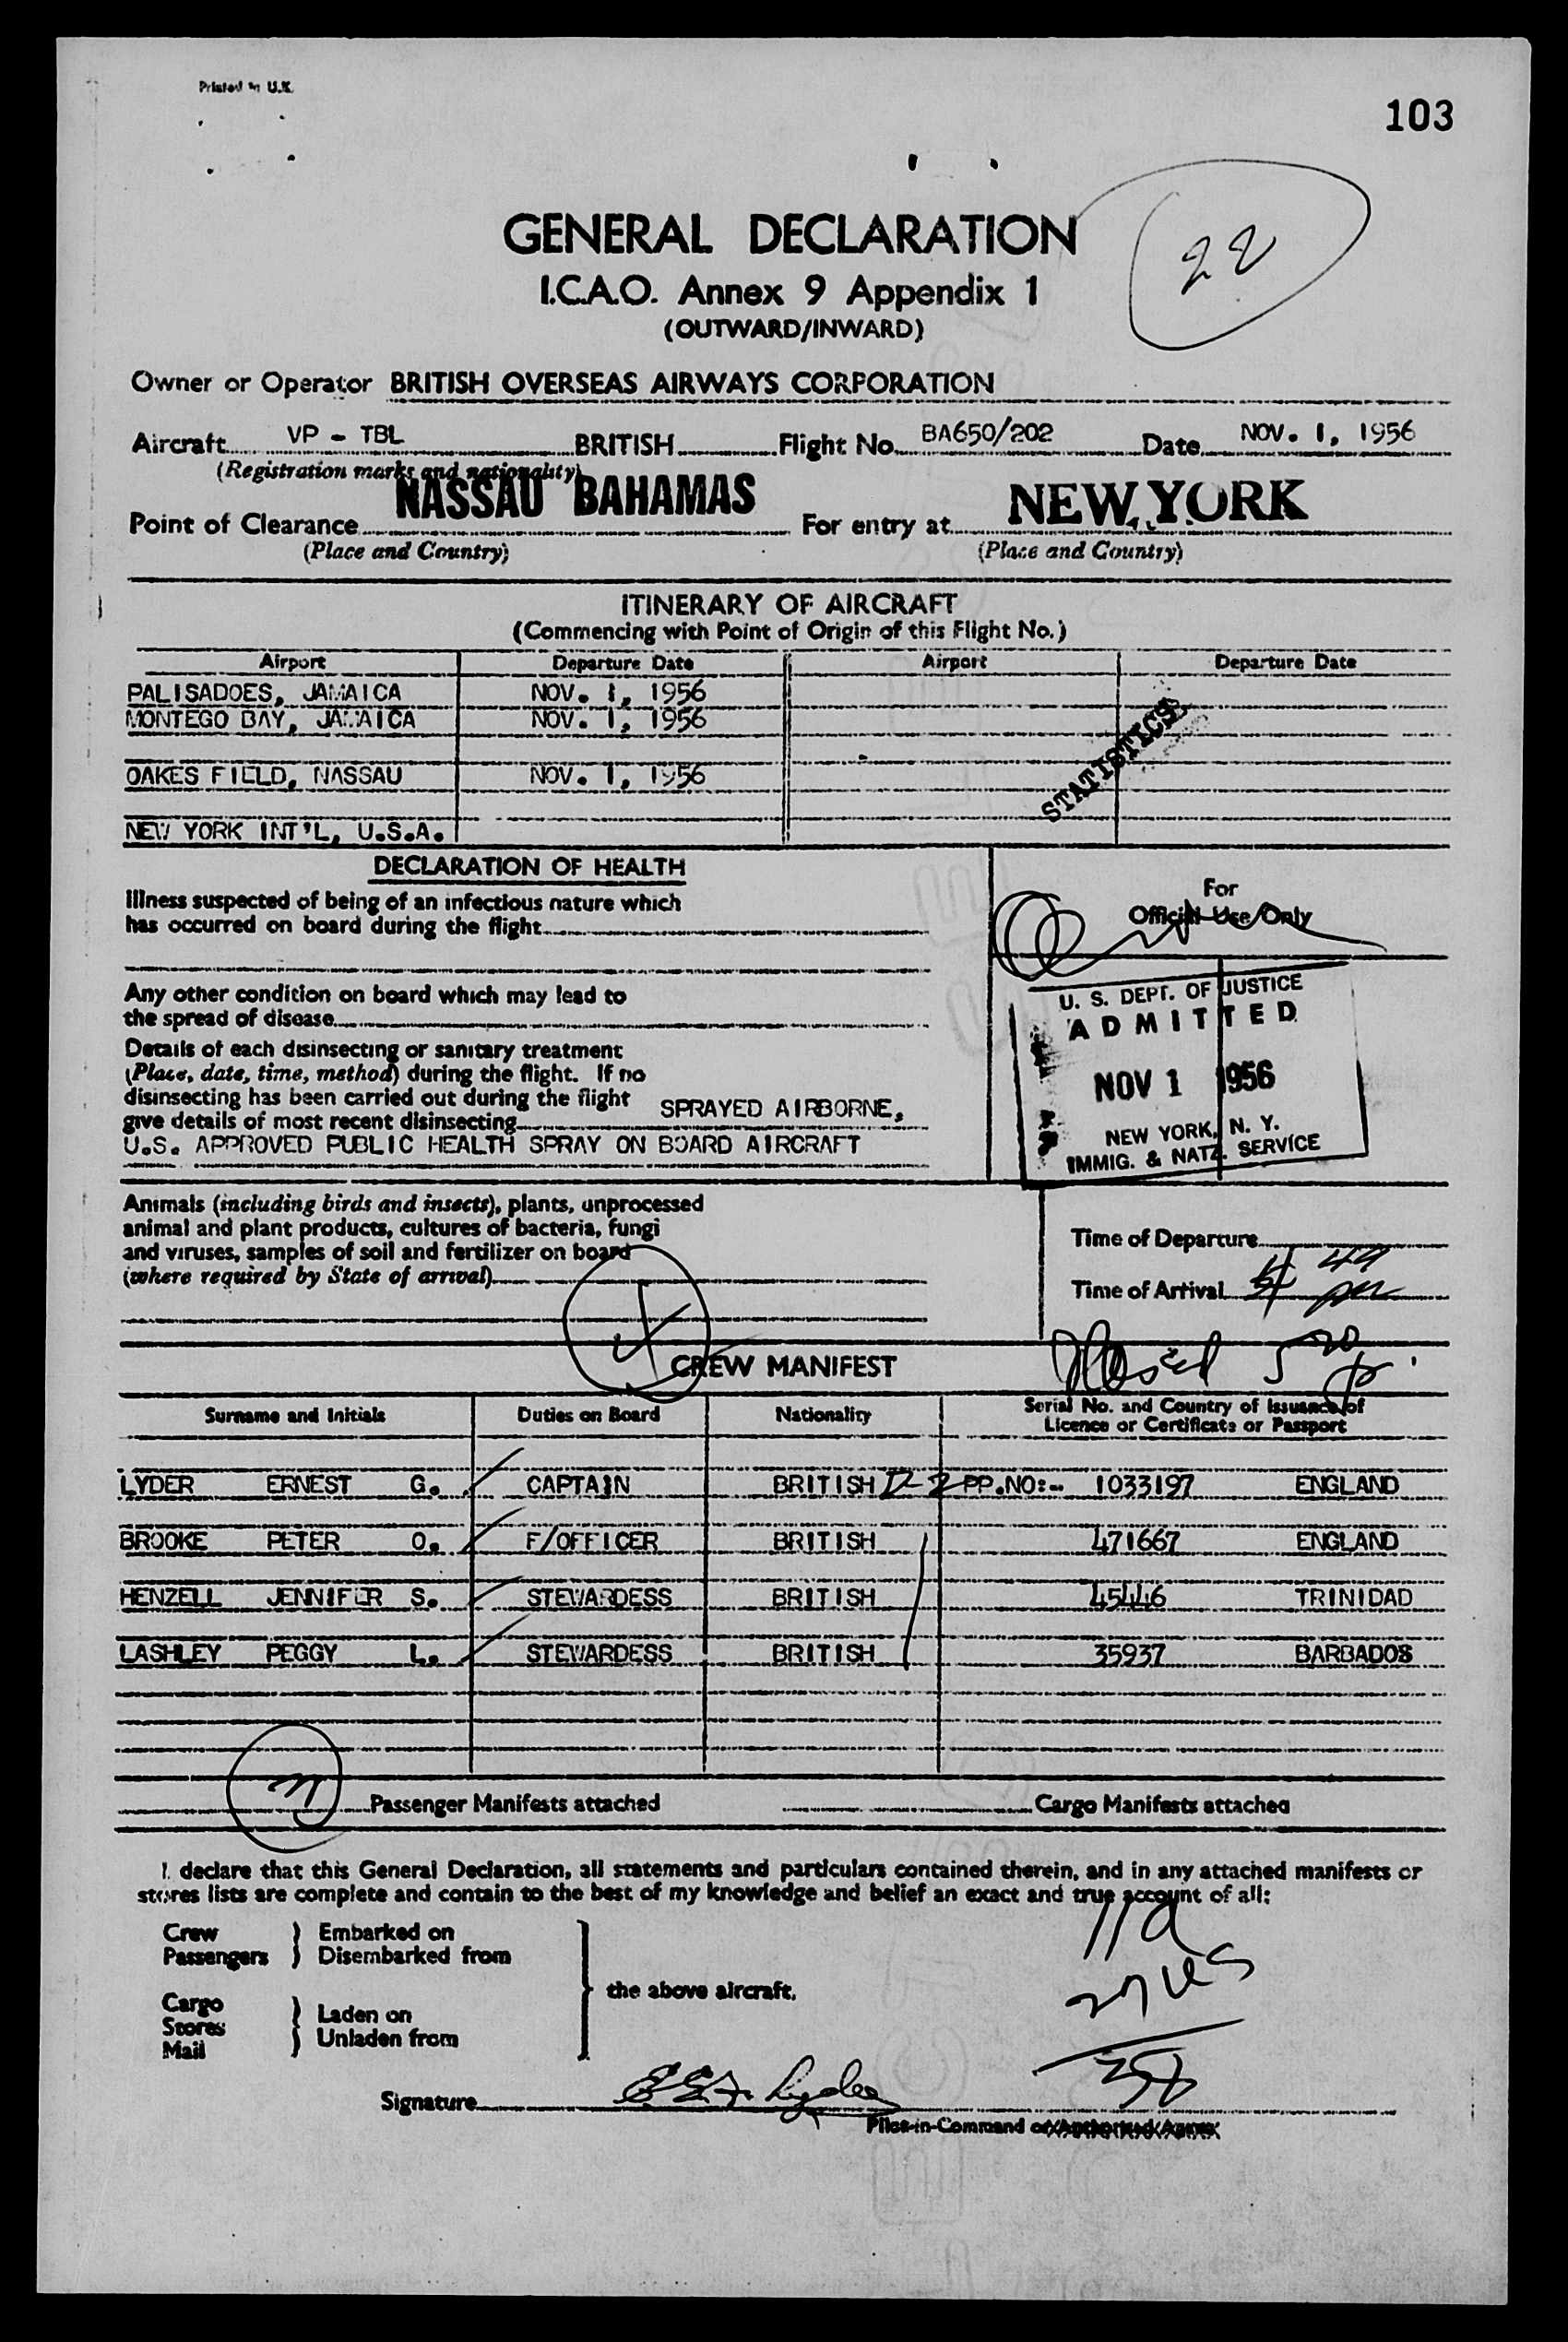 Printed in U.K.
103
GENERAL DECLARATION
22
I.C.A.O. Annex 9 Appendix 1
(OUTWARD/INWARD)
Owner or Operator BRITISH OVERSEAS AIRWAYS CORPORATION
Aircraft VP - TBL BRITISH Flight No. BA650/202 Date NOV. 1, 1956
(Registration marks and nationality)
Point of Clearance NASSAU BAHAMAS For entry at NEW YORK
(Place and Country) (Place and Country)
ITINERARY OF AIRCRAFT
(Commencing with Point of Origin of this Flight No.)
Airport Departure Date Airport Departure Date
PALISADOES, JAMAICA NOV. 1, 1956
MONTEGO BAY, JAMAICA NOV. 1, 1956
STATISTICS
OAKES FIELD, NASSAU NOV. 1, 1956
NEW YORK INT'L, U.S.A.
DECLARATION OF HEALTH
Illness suspected of being of an infectious nature which
has occurred on board during the flight
For
Official Use Only
Any other condition on board which may lead to
the spread of disease
Details of each disinsecting or sanitary treatment
(Place, date, time, method) during the flight. If no
disinsecting has been carried out during the flight
give details of most recent disinsecting SPRAYED AIRBORNE,
U.S. APPROVED PUBLIC HEALTH SPRAY ON BOARD AIRCRAFT
U. S. DEPT. OF JUSTICE
ADMITTED
NOV 1 1956
NEW YORK, N. Y.
IMMIG. & NATZ. SERVICE
Animals (including birds and insects), plants, unprocessed
animal and plant products, cultures of bacteria, fungi
and viruses, samples of soil and fertilizer on board
(where required by State of arrival)
Time of Departure
Time of Arrival 4 49 pm
CREW MANIFEST
Surname and Initials Duties on Board Nationality Serial No. and Country of Issuance of
Licence or Certificate or Passport
LYDER ERNEST G. CAPTAIN BRITISH D-2 PP.NO:- 1033197 ENGLAND
BROOKE PETER O. F/OFFICER BRITISH 471667 ENGLAND
HENZELL JENNIFER S. STEWARDESS BRITISH 45446 TRINIDAD
LASHLEY PEGGY L. STEWARDESS BRITISH 35937 BARBADOS
Passenger Manifests attached Cargo Manifests attached
I declare that this General Declaration, all statements and particulars contained therein, and in any attached manifests or
stores lists are complete and contain to the best of my knowledge and belief an exact and true account of all:
Crew Embarked on
Passengers Disembarked from
the above aircraft.
Cargo
Stores Laden on
Mail Unladen from
11a
27 US
38
Signature E.G. Lyder
Pilot-in-Command or Authorised Agent